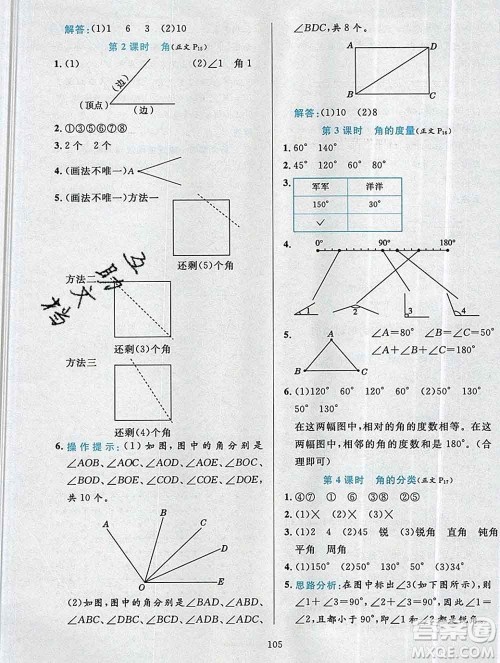 解答：(1)1　6　3　(2)10
第 2 课时　角(正文 P₁₅)
1. (1)　(2)∠1　角 1
(边)
(顶点)　(边)
2. ①③⑤⑦⑧
3. 2 个　2 个
4. (画法不唯一)A
5. (画法不唯一)方法一
还剩(5)个角
方法二
还剩(3)个角
方法三
还剩(4)个角
6. 操作提示：(1)如图，图中的角分别是
∠AOB、∠AOC、∠AOD、∠AOE、
∠BOC、∠BOD、∠BOE、∠COD、∠COE、∠DOE，
共 10 个。
A B C D E O
(2)如图，图中的角分别是∠BAD、∠ABD、
∠BDC，共 8 个。
A D B C
解答：(1)10　(2)8
第 3 课时　角的度量(正文 P₁₆)
1. 60°　140°
2. 45°　120°　60°　130°
3.
军军　洋洋
150°　30°
✓
4. 0°　90°　180°
1　2　3　4
5. ∠A=80°　∠B=60°
A B C
6. (1)120°　60°　120°　60°　(2)50°　130°
50°　130°
在这两幅图中，相对的角的度数相等。在
这两幅图中，相邻的角的度数和是 180°。(合理即可)
第 4 课时　角的分类(正文 P₁₇)
1. ④⑦　①　⑥　⑤
2. (1)╳　(2)╳
3. (1)1　2　4　(2)45　锐　(3)锐角　直角　钝角
平角　周角
4. (1)60　150　30　90　(2)150　30　150
5. 思路分析：(1)在图中标出∠3(如图)，则
∠1+∠3=90°，∠2+∠3=90°，所以
∠1=∠2，并且∠1 和∠2 都是锐角。
105
互助文档
作业帮答案
MXQE.COM